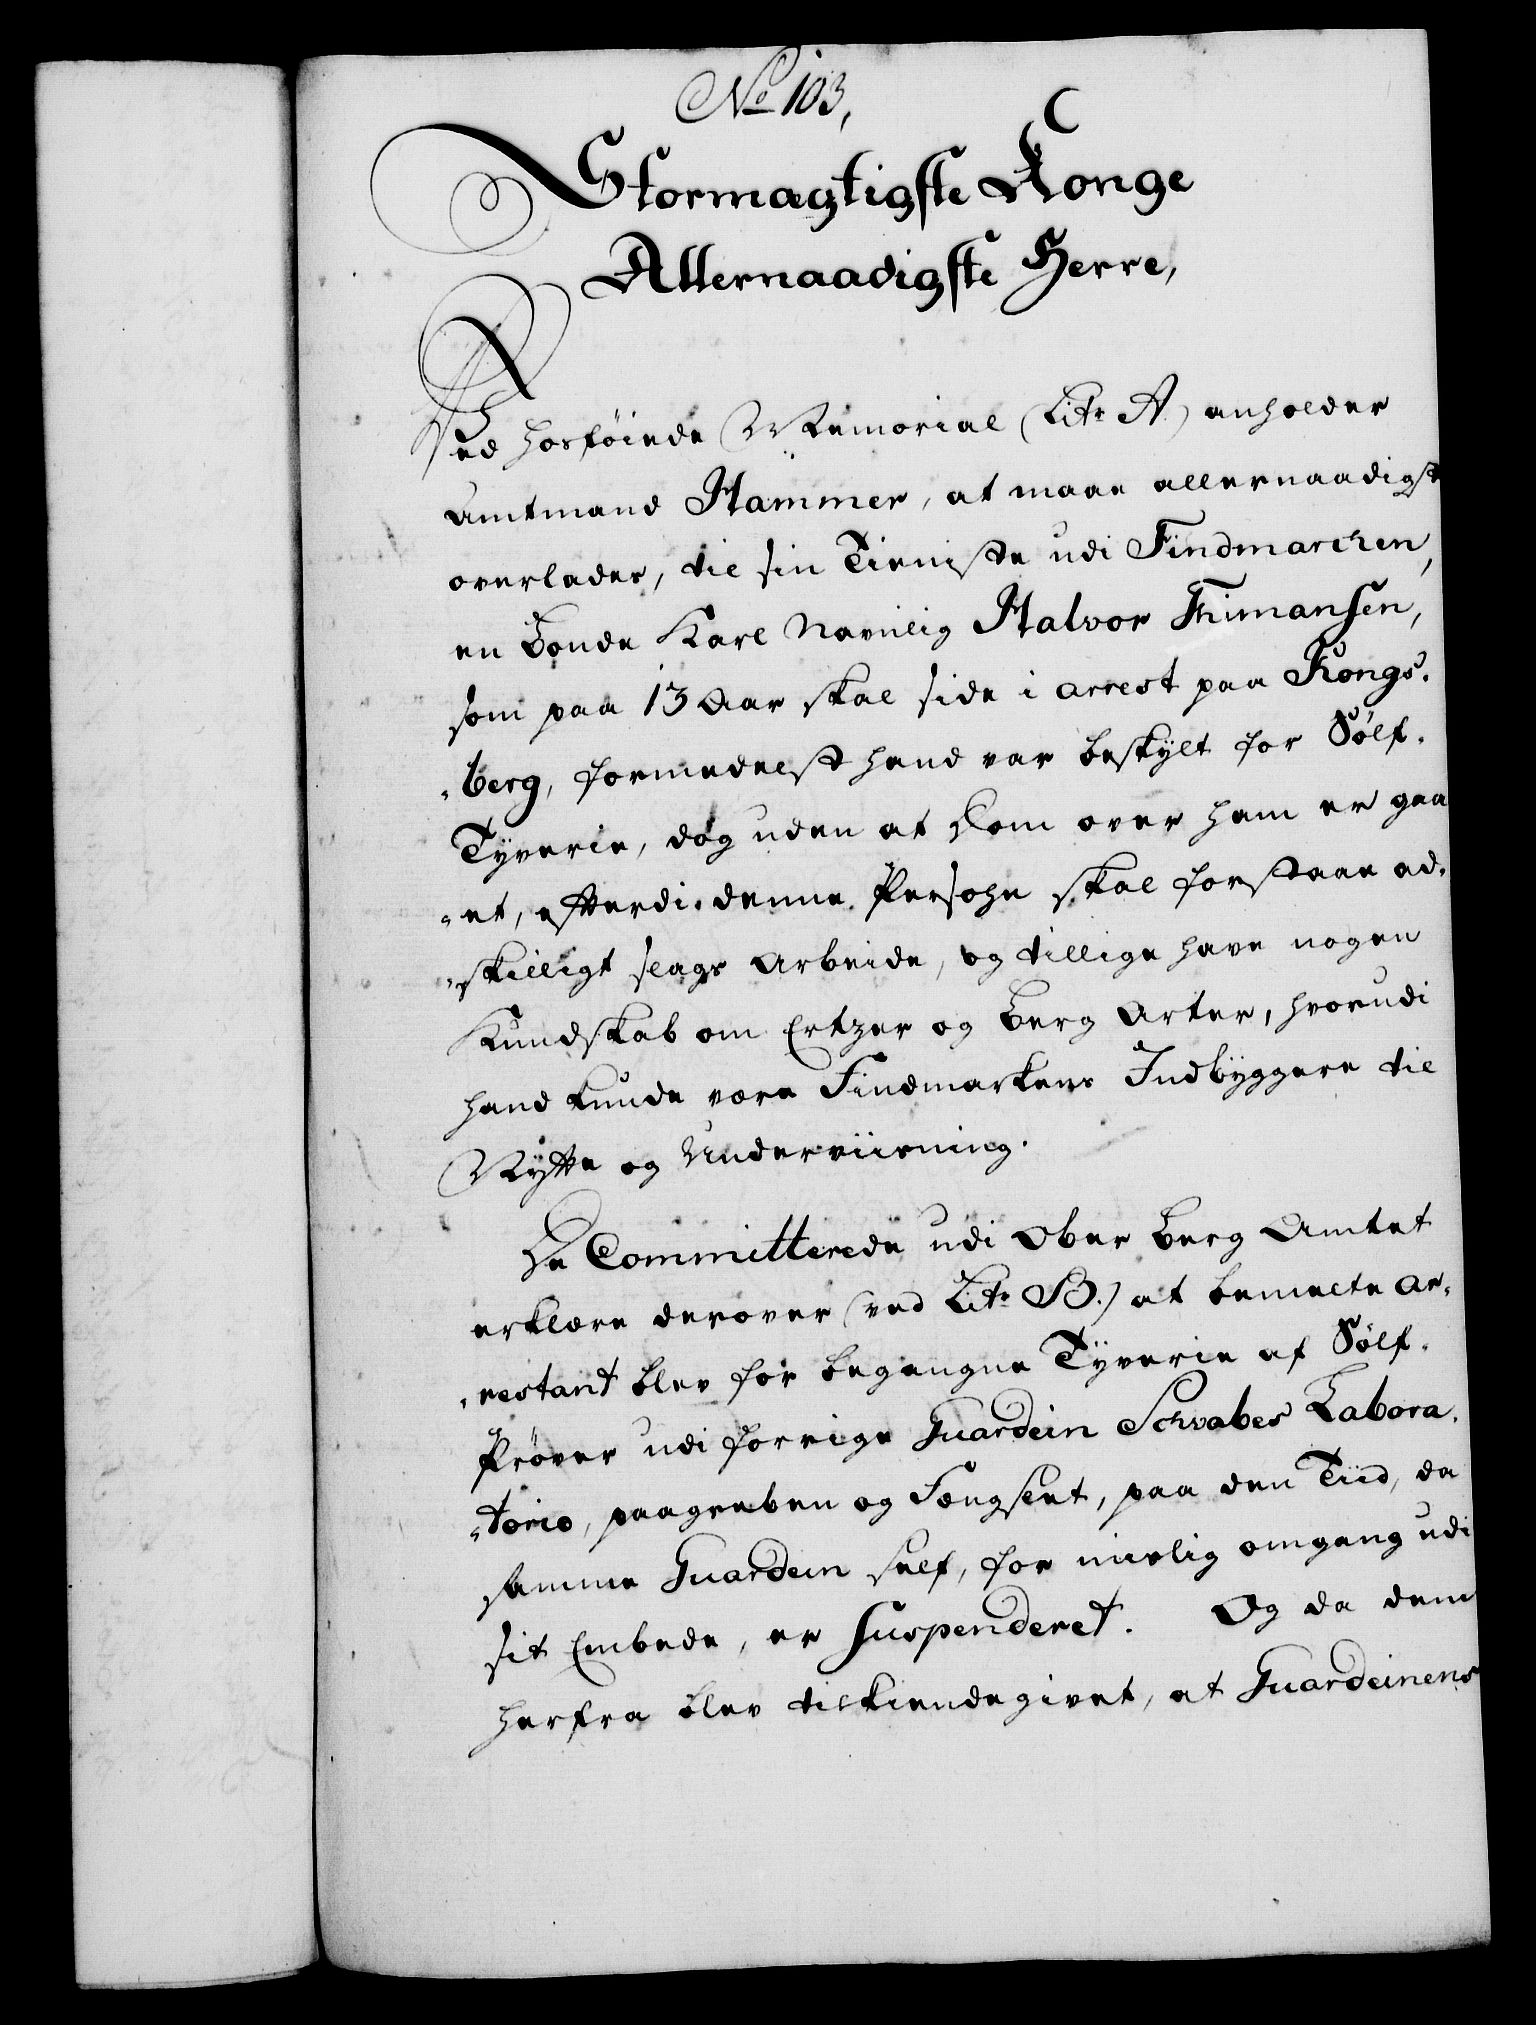 No 103,
Stormægtigste Konge
Allernaadigste Herre,
Ved hosføiede Memorial (Litr A) anholder
Amtmand Hammer, at maae allernaadigst
overlades, til sin Tieniste udi Findmarchen,
en Bonde Karl navnlig Halvor Thimansen,
som paa 13 Aar skal side i arrest paa Kongs-
-berg, formedelst hand var beskylt for Sølf-
Tyverie, dog uden at Dom over ham er gaa
-et, efterdi denne Persohn skal forstaae ad-
-skilligt slags Arbeide, og tillige have nogen
Kundskab om Ertzer og Berg Arter, hvorudi
hand kunde være Findmarkens Indbyggere til
Nytte og Underviisning.
De Committerede udi Ober Berg Amtet
erklære derover (ved Litr B.) at bemelte Ar-
-restant blev for begangne Tyverie af Sølf-
Prøver udi forrige Guardein Schwabes Labora-
-torio, paagreben og Fængslet, paa den Tiid, da
samme Guardein self, for urolig omgang udi
sit Embede, er suspenderet. Og da dem
herfra blev tilkiendegivet, at Guardeinens